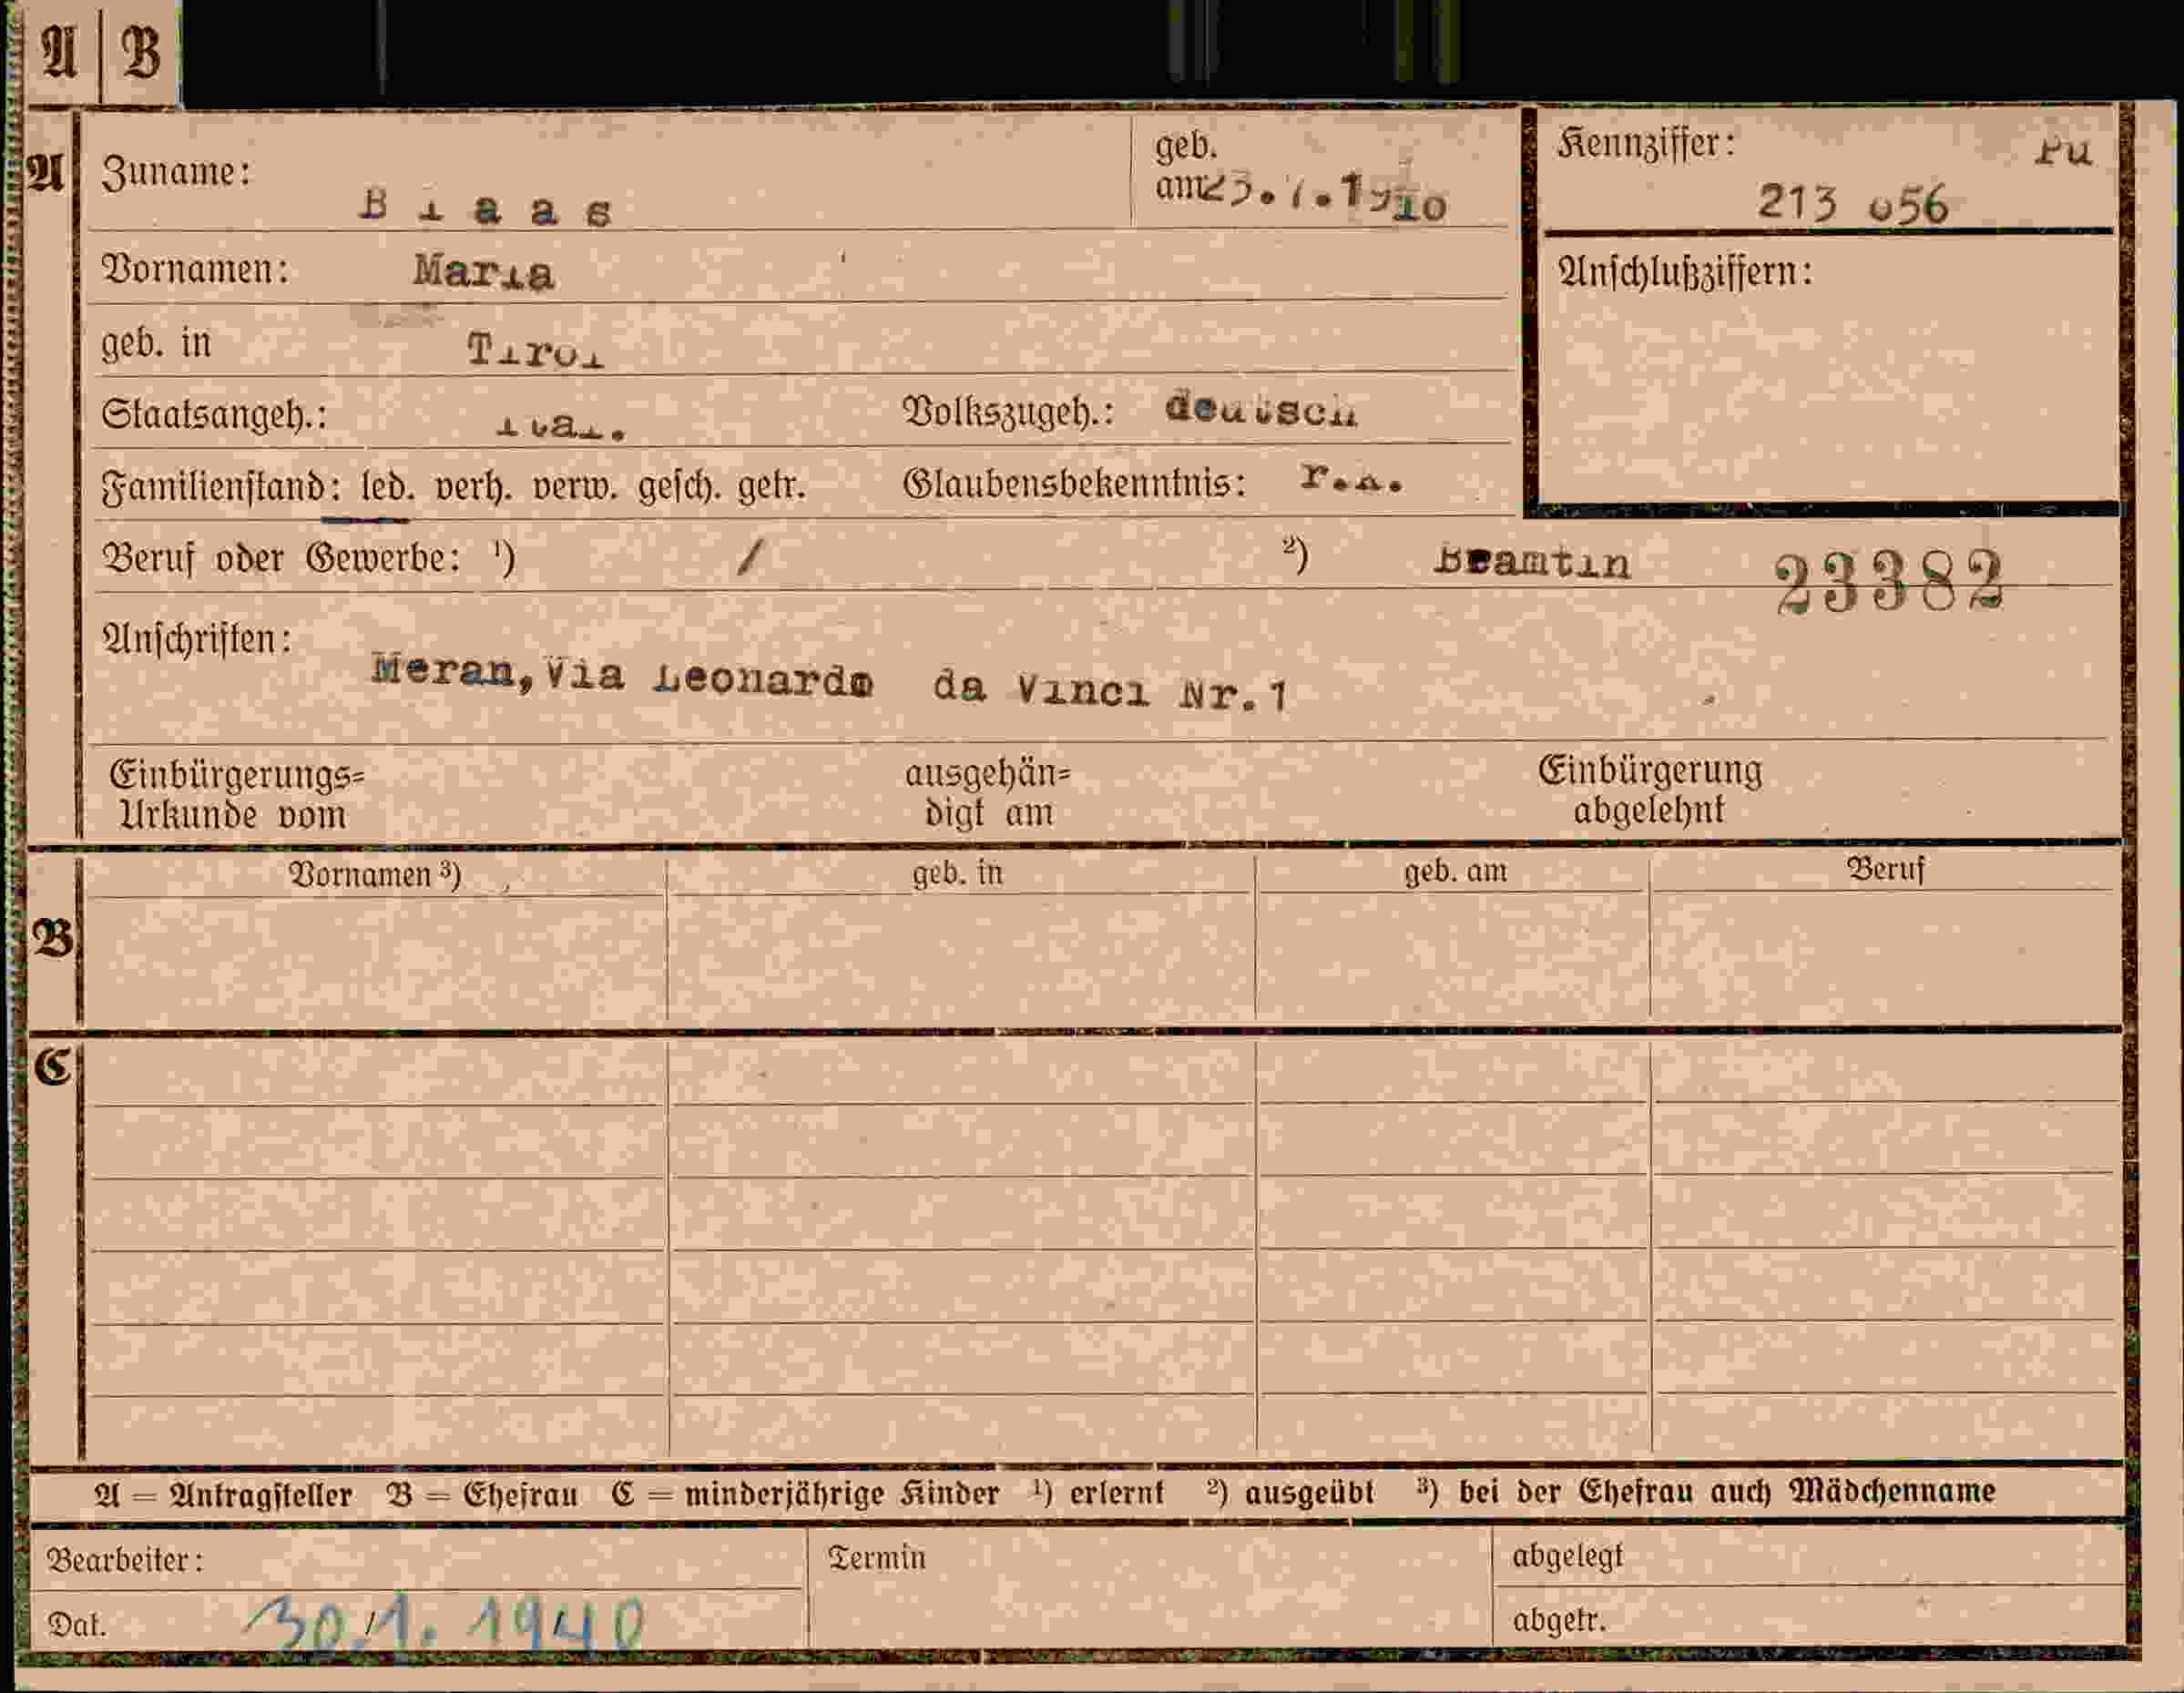 A | B
A Zuname: B l a a s geb. am Kennziffer:
213 056
Vornamen: Maria Anschlußziffern:
geb. in Tirol
Staatsangeh.: ital. Volkszugeh.: deutsch
Familienstand: led. verh. verw. gesch. getr. Glaubensbekenntnis: r.k.
Beruf oder Gewerbe: ¹) / ²) Beamtin 23382
Anschriften: Meran, Via Leonardo da Vinci Nr.1
Einbürgerungs= ausgehän= Einbürgerung
Urkunde vom digt am abgelehnt
Vornamen ³) geb. in geb. am Beruf
B
C
A = Antragsteller B = Ehefrau C = minderjährige Kinder ¹) erlernt ²) ausgeübt ³) bei der Ehefrau auch Mädchenname
Bearbeiter: Termin abgelegt
Dat. 30.1. 1940 abgetr.